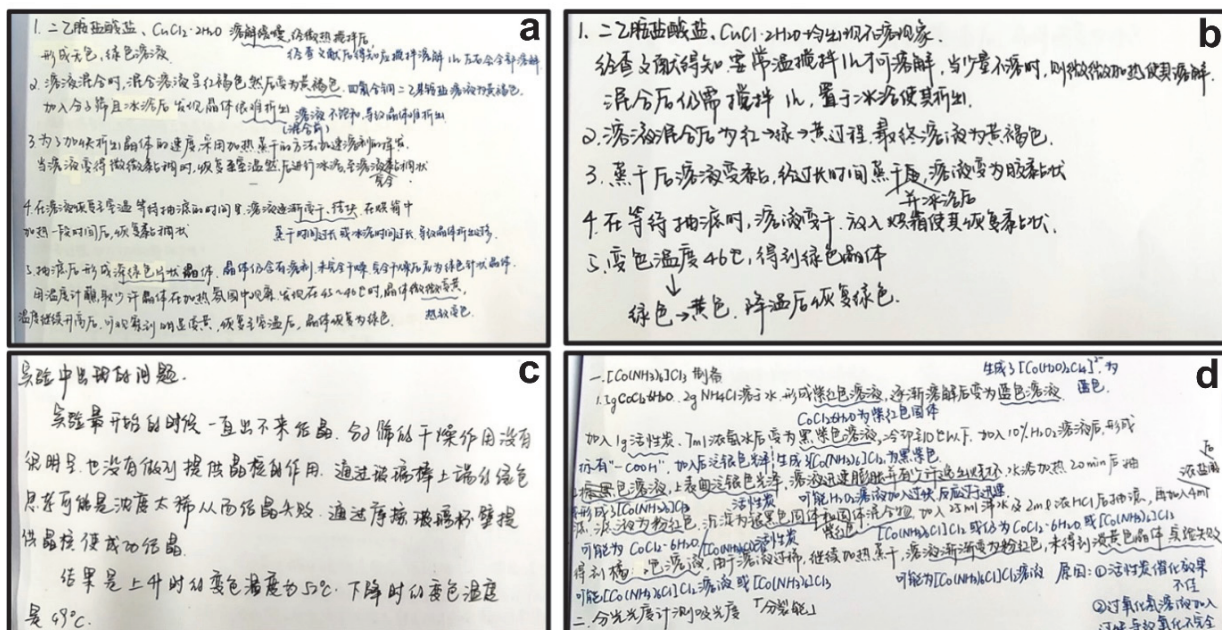 a
1. 二乙胺盐酸盐、CuCl₂·2H₂O 溶解缓慢,经微热搅拌后,
形成无色,绿色溶液.
经查文献后得知应搅拌溶解1h左右会全部溶解
2. 溶液混合时,混合溶液呈红褐色然后变为黄褐色. 四氯合铜二乙基铵盐溶液为黄褐色.
加入分子筛且冰浴后发现晶体很难析出 溶液不饱和,导致晶体难析出
(混合前)
3 为了加快析出晶体的速度,采用加热蒸干的方法,加速溶剂的挥发.
当溶液变得微微黏稠时,恢复至室温然后进行冰浴,至溶液黏稠状
4. 在溶液恢复至室温等待抽滤的时间里,溶液逐渐变干,结块,在烘箱中
加热一段时间后,恢复黏稠状 蒸干时间过长或冰浴时间过长,导致晶体析出过多.
5. 抽滤后形成深绿色片状晶体. 晶体仍含有溶剂,未完全干燥,完全干燥后应为绿色针状晶体.
用温度计蘸取少许晶体在加热氛围中观察,发现在45~46℃时,晶体微微变黄,
温度继续升高后,可观察到明显变黄,恢复至室温后,晶体恢复为绿色. 热致变色.
b
1. 二乙胺盐酸盐、CuCl·2H₂O均出现不溶现象.
经查文献得知,要常温搅拌1h才可溶解,当少量不溶时,则微微加热使其溶解.
混合后仍需搅拌1h,置于冰浴使其析出.
2. 溶液混合后为红→绿→黄过程,最终溶液为黄褐色.
3. 蒸干后溶液变黏,经过长时间蒸干后,溶液变为胶黏状
并冰浴后
4. 在等待抽滤时,溶液变干,放入烘箱使其恢复黏状.
5. 变色温度46℃,得到绿色晶体
↓
绿色→黄色. 降温后恢复绿色.
c
实验中出现的问题.
实验最开始的时候一直出不来结晶. 分子筛的干燥作用没有
很明显,也没有做到提供晶核的作用. 通过玻璃棒上端的绿色
思索可能是浓度太稀从而结晶失败. 通过摩擦玻璃杯壁提
供晶核便成功结晶.
结果是上升时的变色温度为52℃. 下降时的变色温度
是49℃.
d
一. [Co(NH₃)₆]Cl₃ 制备
生成了[Co(H₂O)₂Cl₄]²⁻为
蓝色.
1. 1g CoCl₂·6H₂O. 2g NH₄Cl溶于水,形成紫红色溶液,逐渐溶解后变为蓝色溶液.
CoCl₂·6H₂O为紫红色固体
加入1g活性炭. 7ml浓氨水后变为黑紫色溶液,冷却到10℃以下,加入10% H₂O₂溶液后,形成
标有"-COOH",加入后泛银色光泽!生成了[Co(NH₃)₆]Cl₂为黑紫色.
棕黑色溶液,上表面泛银色光泽,溶液迅速膨胀并有少许逸出烧杯,水浴加热20min后抽
形成了[Co(NH₃)₆]Cl₃ 活性炭 可能H₂O₂溶液加入过快,反应过于迅速.
滤,滤液为粉红色,沉淀为 黑色固体和 固体混合物,加入25ml沸水及2ml浓HCl后抽滤,再加入4ml
后
浓盐酸
可能为CoCl₂·6H₂O / 活性炭 [Co(NH₃)₅Cl]Cl₂或仍为CoCl₂·6H₂O或[Co(NH₃)₆]Cl₃
得到橘 色溶液,由于溶液过稀,继续加热蒸干,溶液渐渐变为粉红色,未得到浅黄色晶体实验失败
可能[Co(NH₃)₅Cl]Cl₂溶液或[Co(NH₃)₆]Cl₃ 可能为[Co(NH₃)₅Cl]Cl₂溶液 原因:①活性炭催化效果
不佳
二. 分光光度计测吸光度「分裂能」
②过氧化氢溶液加入
过快导致氧化不完全